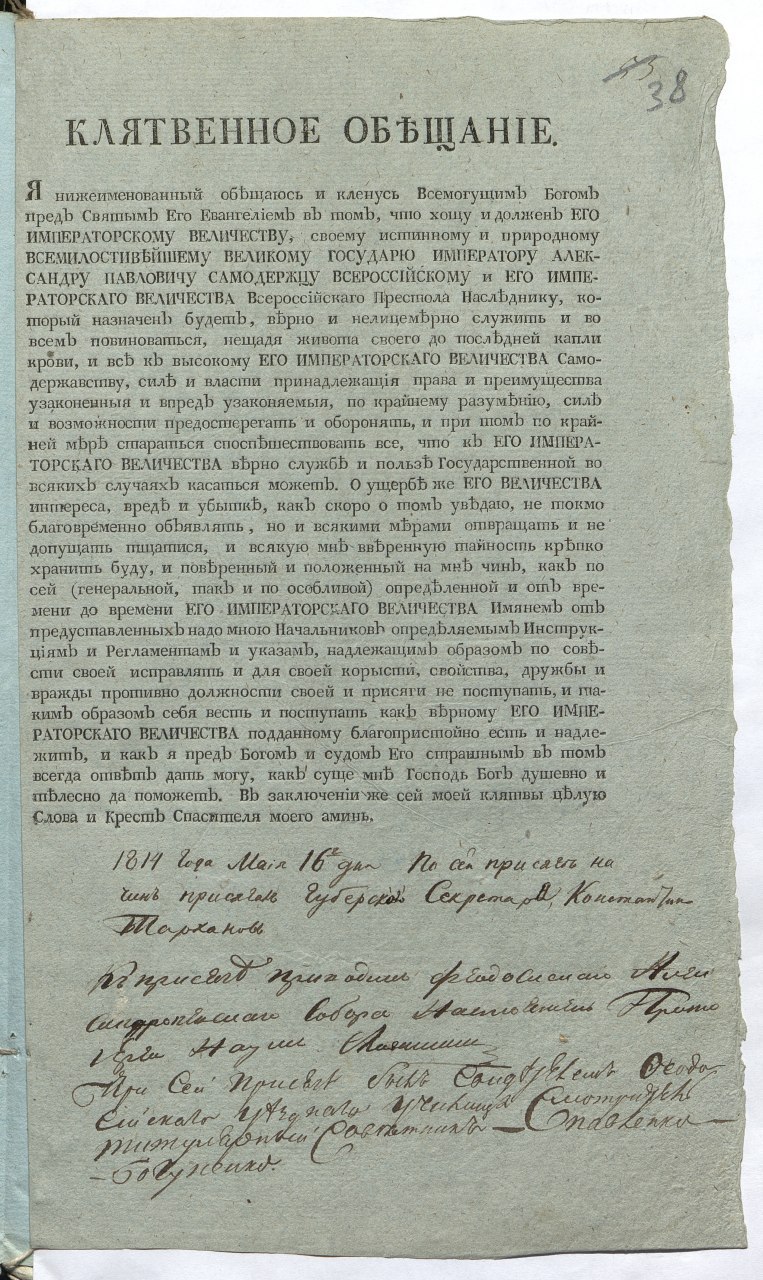 38
КЛЯТВЕННОЕ ОБѢЩАНІЕ.
Я нижеименованный обѣщаюсь и кленусь Всемогущимъ Богомъ
предъ Святымъ Его Евангеліемъ въ томъ, что хощу и долженъ ЕГО
ИМПЕРАТОРСКОМУ ВЕЛИЧЕСТВУ, своему истинному и природному
ВСЕМИЛОСТИВѢЙШЕМУ ВЕЛИКОМУ ГОСУДАРЮ ИМПЕРАТОРУ АЛЕК-
САНДРУ ПАВЛОВИЧУ САМОДЕРЖЦУ ВСЕРОССІЙСКОМУ и ЕГО ИМПЕ-
РАТОРСКАГО ВЕЛИЧЕСТВА Всероссійскаго Престола Наслѣднику, ко-
торый назначенъ будетъ, вѣрно и нелицемѣрно служить и во
всемъ повиноваться, нещадя живота своего до послѣдней капли
крови, и всѣ къ высокому ЕГО ИМПЕРАТОРСКАГО ВЕЛИЧЕСТВА Само-
державству, силѣ и власти принадлежащія права и преимущества
узаконенныя и впредъ узаконяемыя, по крайнему разумѣнію, силѣ
и возможности предостерегать и оборонять, и при томъ по край-
ней мѣрѣ стараться споспѣшествовать все, что къ ЕГО ИМПЕРА-
ТОРСКАГО ВЕЛИЧЕСТВА вѣрно службѣ и пользѣ Государственной во
всякихъ случаяхъ касаться можетъ. О ущербѣ же ЕГО ВЕЛИЧЕСТВА
интереса, вредѣ и убыткѣ, какъ скоро о томъ увѣдаю, не токмо
благовременно объявлять, но и всякими мѣрами отвращать и не
допущать тщатися, и всякую мнѣ ввѣренную тайность крѣпко
хранить буду, и повѣренный и положенный на мнѣ чинъ, какъ по
сей (генеральной, такъ и по особливой) опредѣленной и отъ вре-
мени до времени ЕГО ИМПЕРАТОРСКАГО ВЕЛИЧЕСТВА Имянемъ отъ
предуставленныхъ надо мною Начальниковъ опредѣляемымъ Инструк-
ціямъ и Регламентамъ и указамъ, надлежащимъ образомъ по совѣ-
сти своей исправлять и для своей корысти, свойства, дружбы и
вражды противно должности своей и присяги не поступать, и та-
кимъ образомъ себя весть и поступать какъ вѣрному ЕГО ИМПЕ-
РАТОРСКАГО ВЕЛИЧЕСТВА подданному благопристойно есть и надле-
житъ, и какъ я предъ Богомъ и судомъ Его страшнымъ въ томъ
всегда отвѣтъ дать могу, какъ суще мнѣ Господь Богъ душевно и
тѣлесно да поможетъ. Въ заключеніи же сей моей клятвы цѣлую
Слова и Крестъ Спасителя моего аминь.
1814 Года Маія 16го дня По сей присягѣ на
чинъ присягалъ Губернской Секретарь Константинъ
Тархановъ
Къ присягѣ приводилъ Феодосійскаго Алек
сандроневскаго Собора Настоятель Прото
іерей
При Сей Присягѣ былъ Свидѣтелемъ Феодо
сійскаго Уѣзднаго Училища Смотритель
титулярный Совѣтникъ Павленко